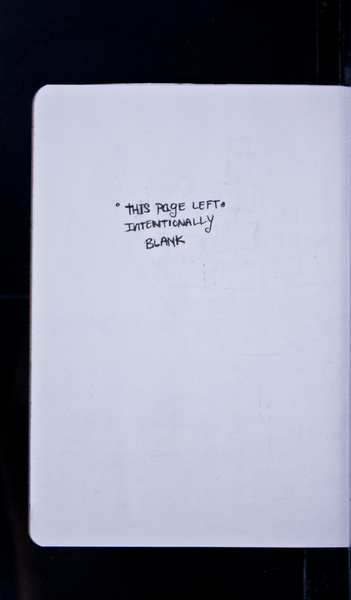 ° THIS PAgE LEFT°
INTENTIONALLY
BLANK